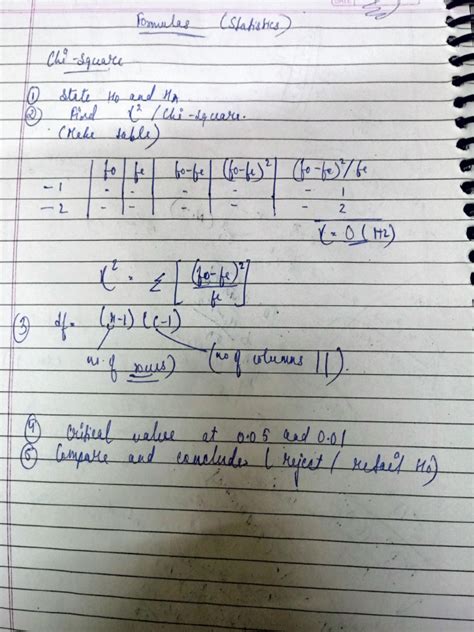 Formulas (Statistics)
Chi-Square
① State H₀ and Hₐ
② Find χ² / Chi-square.
(Make table)
fo | fe | fo-fe | (fo-fe)² | (fo-fe)²/fe
-1 | - | - | - | - | 1
-2 | - | - | - | - | 2
χ² = Σ [(fo-fe)²/fe]
③ df = (r-1) (c-1)
no. of rows) (no of columns ||).
④ Critical value at 0.05 and 0.01
⑤ Compare and conclude (reject / retain H₀)